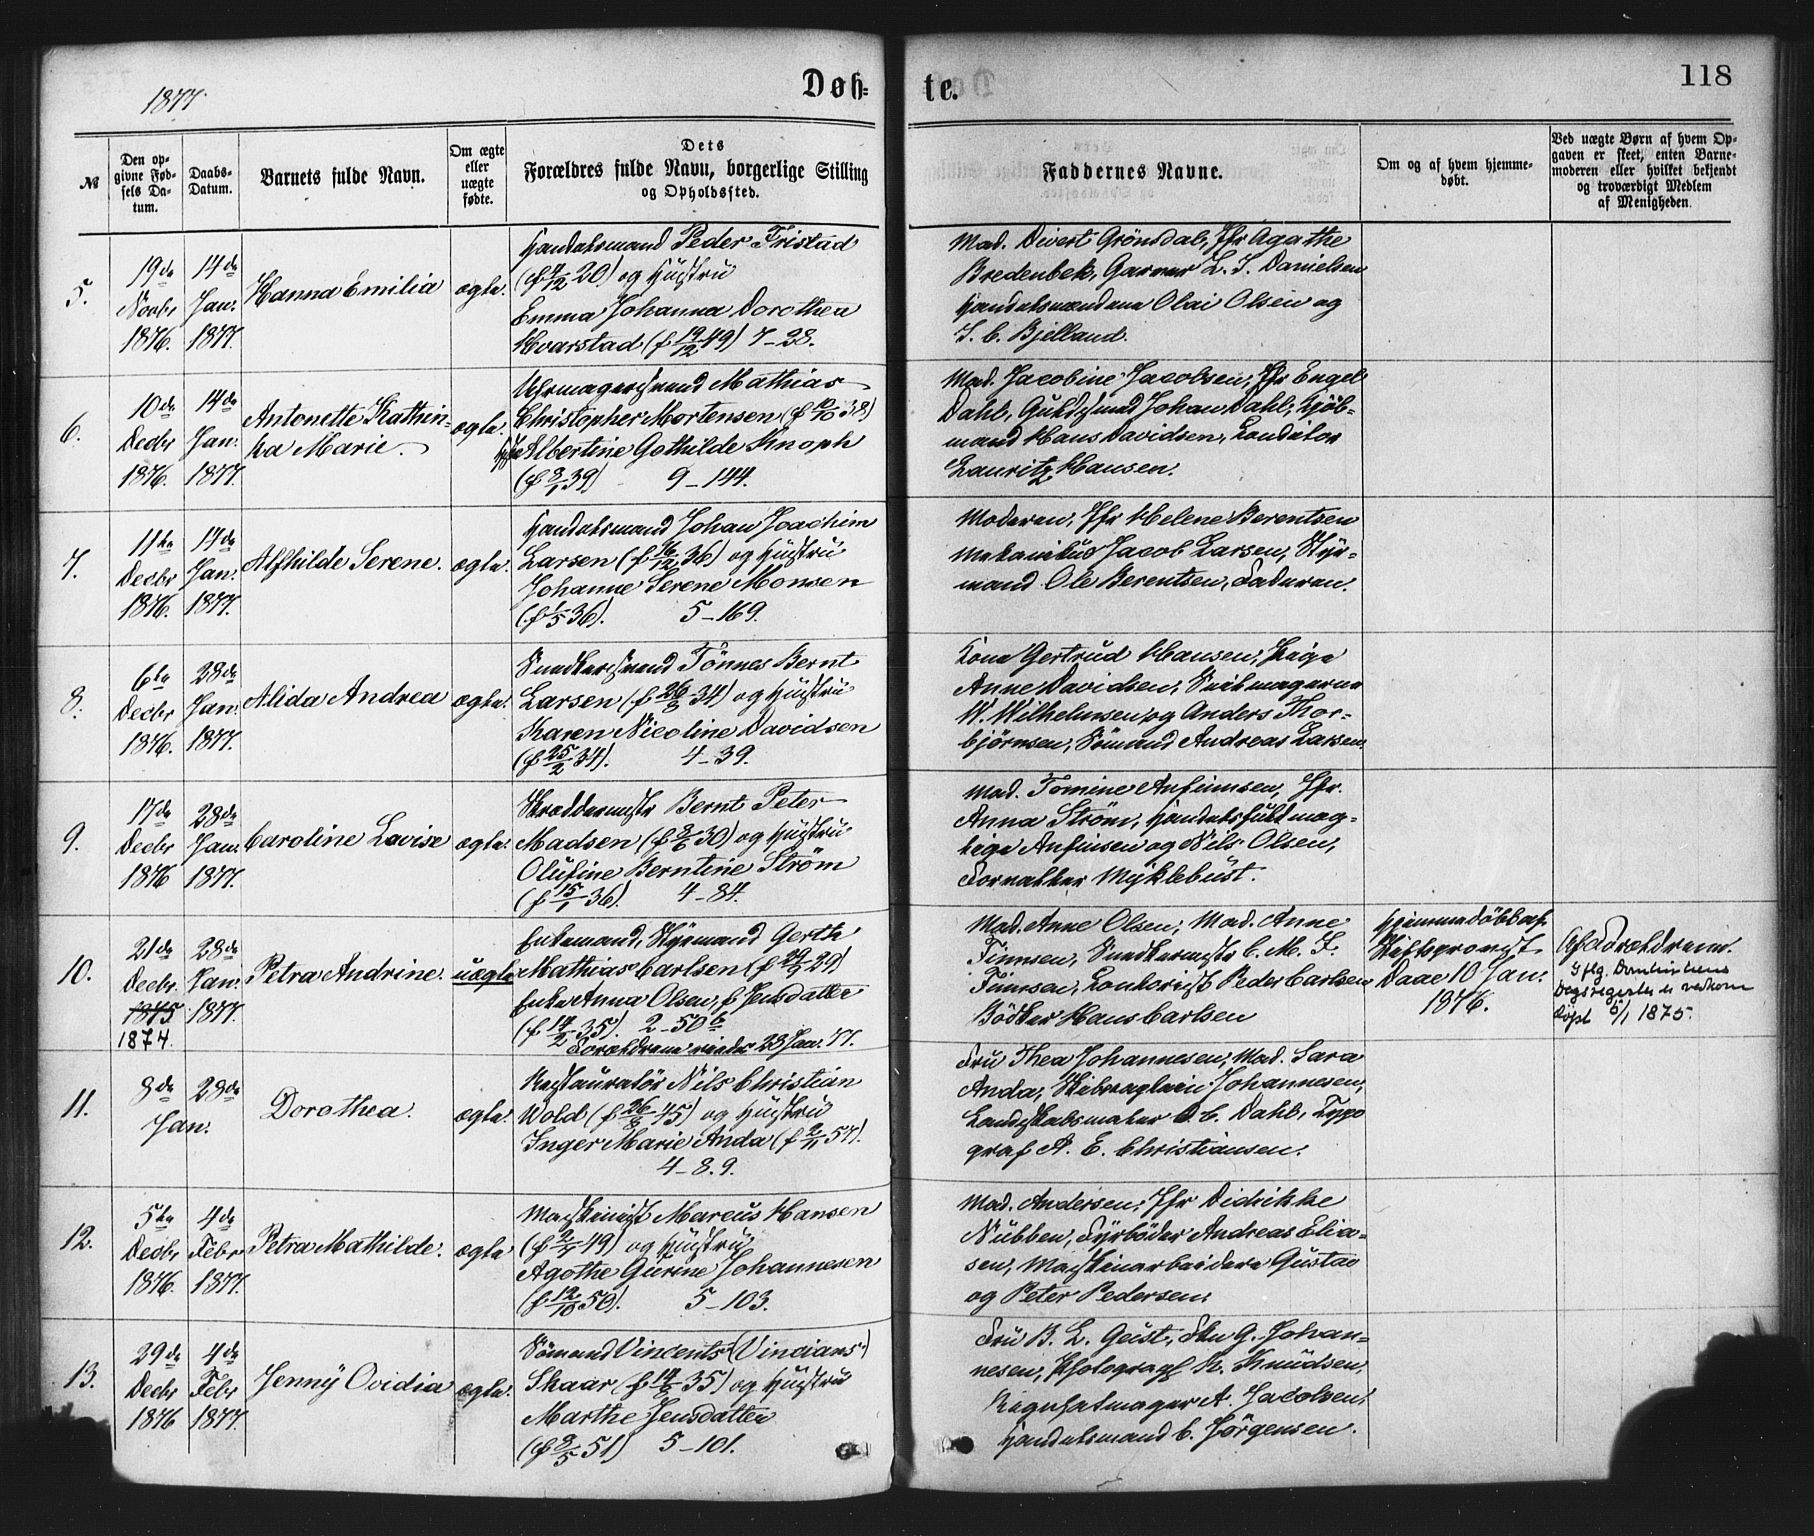 1877.
Døb-
te.
118
№
Den op-
givne Fød-
sels Da-
tum.
Daabs-
Datum.
Barnets fulde Navn.
Om ægte
eller
uægte
fødte.
Dets
Forældres fulde Navn, borgerlige Stilling
og Opholdssted.
Faddernes Navne.
Om og af hvem hjemme-
døbt.
Ved uægte Børn af hvem Op-
gaven er skeet, enten Barne-
moderen eller hvilket bekjendt
og troværdigt Medlem
af Menigheden.
5.
19de
Novbr
1876.
14de
Jan.
1877.
Hanna Emilia
ægte.
Handelsmand Peder Tristad
(f 20) og Hustru
Emma Johanna Dorothea
Hvarstad (f 19/12 49) 7-28.
Mad. Divert Grönsdal, Jfr Agathe
Bredenbek, Garver L. S. Danielsen
Handelsmændene Olai Olsen og
S. C. Bjelland.
6.
10de
Decbr
1876.
14de
Jan.
1877.
Antonette Kathin-
ka Marie.
ægte.
Uhrmagersvend Mathias
Christopher Mortensen (f 38)
Albertine Gothilde Knoph
(f 3/1 39) 9-144.
Mad. Jacobine Jacobsen, Jfr Engel
Dahl, Guldsmed Johan Dahl, Kjöb-
mand Hans Davidsen, Konditor
Lauritz Hansen.
7.
11te
Decbr
1876.
14de
Jan.
1877.
Alfhilde Serene.
ægte.
Handelsmand Johan Joachim
Larsen (f 16/12 36) og Hustru
Johanne Serene Monsen
(f 1/5 36). 5-169.
Moderen, Jfr Helene Berentsen
Mekanikus Jacob Larsen, Styr-
mand Ole Berentsen, Faderen.
8.
6te
Decbr
1876.
28de
Jan.
1877.
Alida Andrea
ægte.
Snedkersvend Tönnes Bernt
Larsen (f 26/8 34) og Hustru
Karen Nicoline Davidsen
(f 25/2 34). 4-39.
Kone Gertrud Hansen, Pige
Anne Davidsen, Seilmagerne
W. Wilhelmsen og Anders Thor-
björnsen, Sömand Andreas Larsen.
9.
17de
Decbr
1876
28de
Jan.
1877.
Caroline Lovise
ægte.
Skræddermestr Bernt Peter
Madsen (f 3/6 30) og Hustru
Olufine Berntine Ström
(f 15/1 36). 4-84.
Mad. Tomine Anfinnsen, Jfr.
Anna Ström, Handelsfuldmæg-
tige Anfinsen og Nils Olsen,
Forvalter Myklebust.
10.
21de
Decbr.
1875
1874.
28de
Jan.
1877.
Petra Andrine.
uægte
Enkemand, Styrmand Gerth
Mathias Carlsen (f 29)
Enke Anna Olsen, f Jensdatter
(f 14/2 35). 2-50 b
Forældrene viede 23 Jan. 77.
Mad. Anne Olsen, Mad. Anne
Finnsen, Snedkermestr C. M. F.
Finnsen, Kontorist Peder Carlsen
Bödker Hans Carlsen
Hjemmedöbt af
Stiftsprovst
Daae 10 Jan.
1876.
Af Forældrene.
Iflg. Domkirkens
Dagsregister er vedkom
døpt 6/1 1875.
11.
8de
Jan.
28de
Dorothea.
ægte.
Restauratör Nils Christian
Wold (f 26/8 45) og Hustru
Inger Marie Anda (f 2/11 57).
4-8.9.
Fru Thea Johannesen, Mad. Sara
Anda, Skibsreder Johannesen,
Landskabsmaler C. Dahl, Typo
graf A. E. Christiansen.
12.
5te
Decbr
1876.
4de
Febr
1877.
Petra Mathilde.
ægte
Maskinist Marcus Hansen
(f 49) og Hustru
Agothe Gurine Johannesen
(f 12/10 50). 5-103.
Mad. Andersen, Jfr Didrikke
Nubben, Fyrböder Andreas Elia-
sen, Maskinarbeidere Gustav
og Peter Pedersen.
13.
29de
Decbr
1876
4de
Febr
1877.
Jenny Ovidia
ægte.
Sömand Vincents (Vincians)
Skaar (f 35) og Hustru
Marthe Jensdatter
(f 3/5 51) 5-101.
Fru B. L. Geist, Frk G. Johan-
nesen, Photograf K. Knudsen,
A. Jacobsen,
Handelsmand C. Jörgensen.